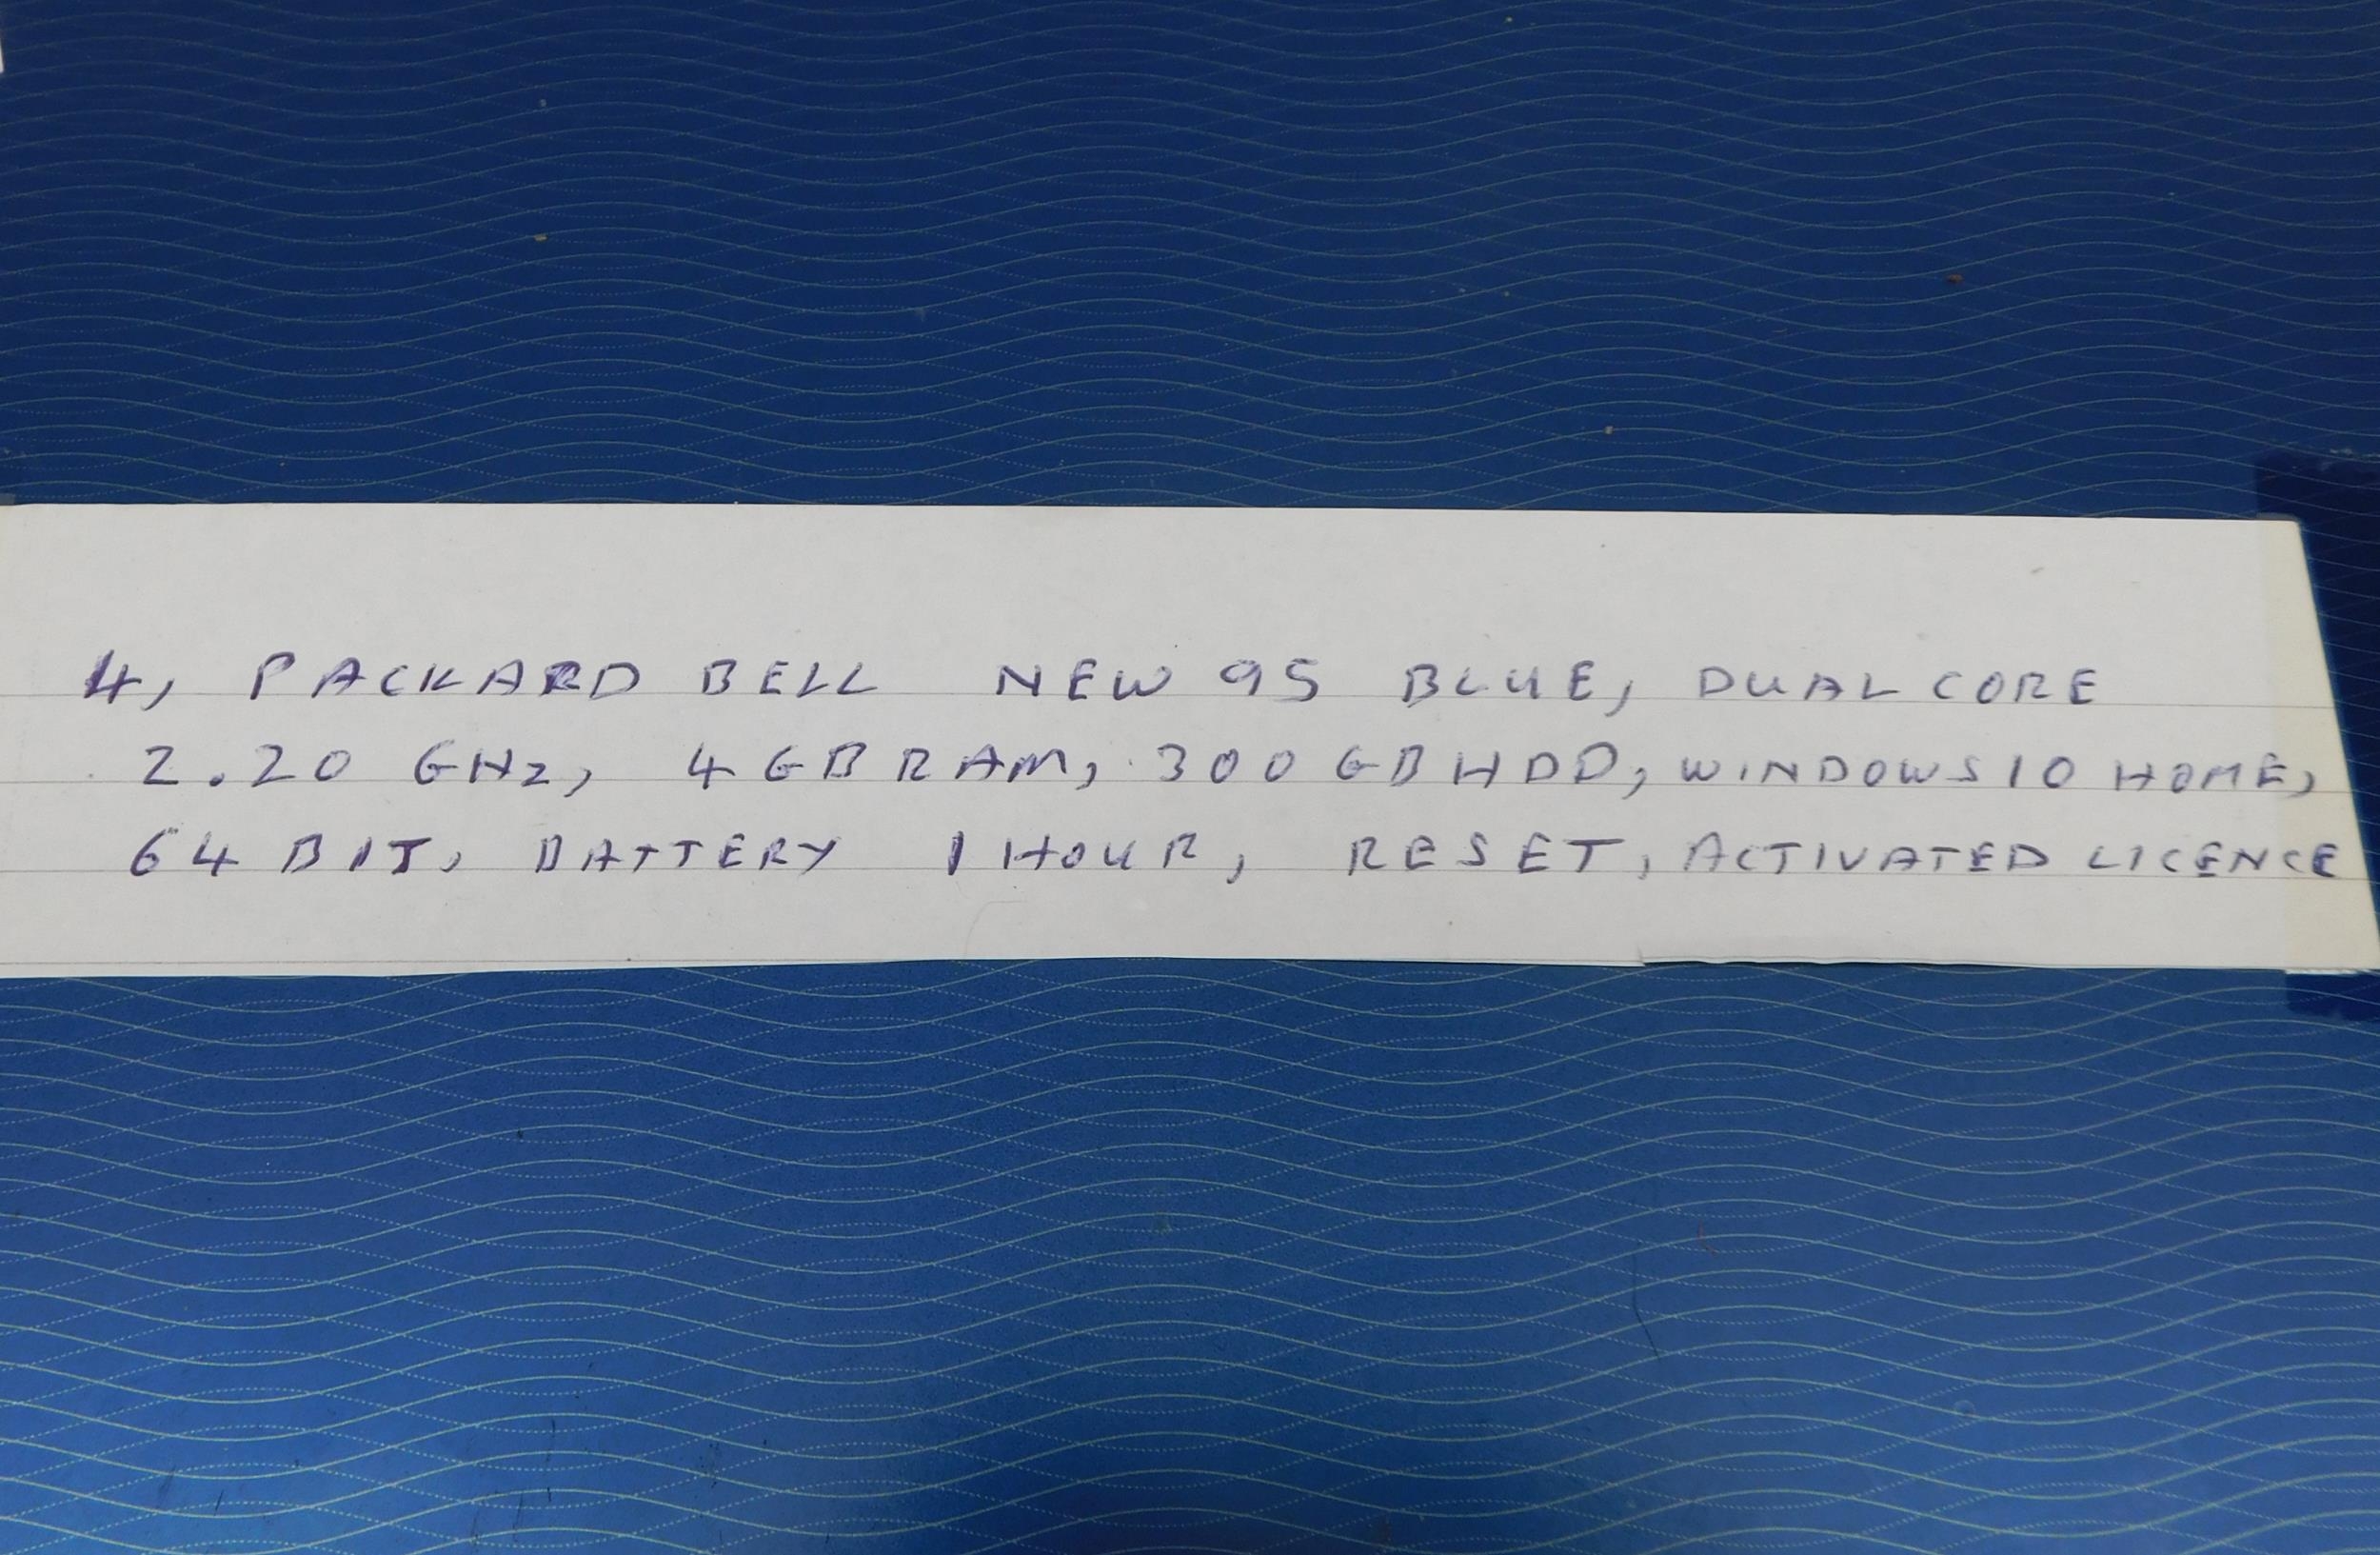 4, PACKARD BELL NEW 95 BLUE, DUAL CORE
2.20 GHz, 4 GB RAM, 300 GB HDD, WINDOWS 10 HOME,
64 BIT, BATTERY 1 HOUR, RESET, ACTIVATED LICENCE